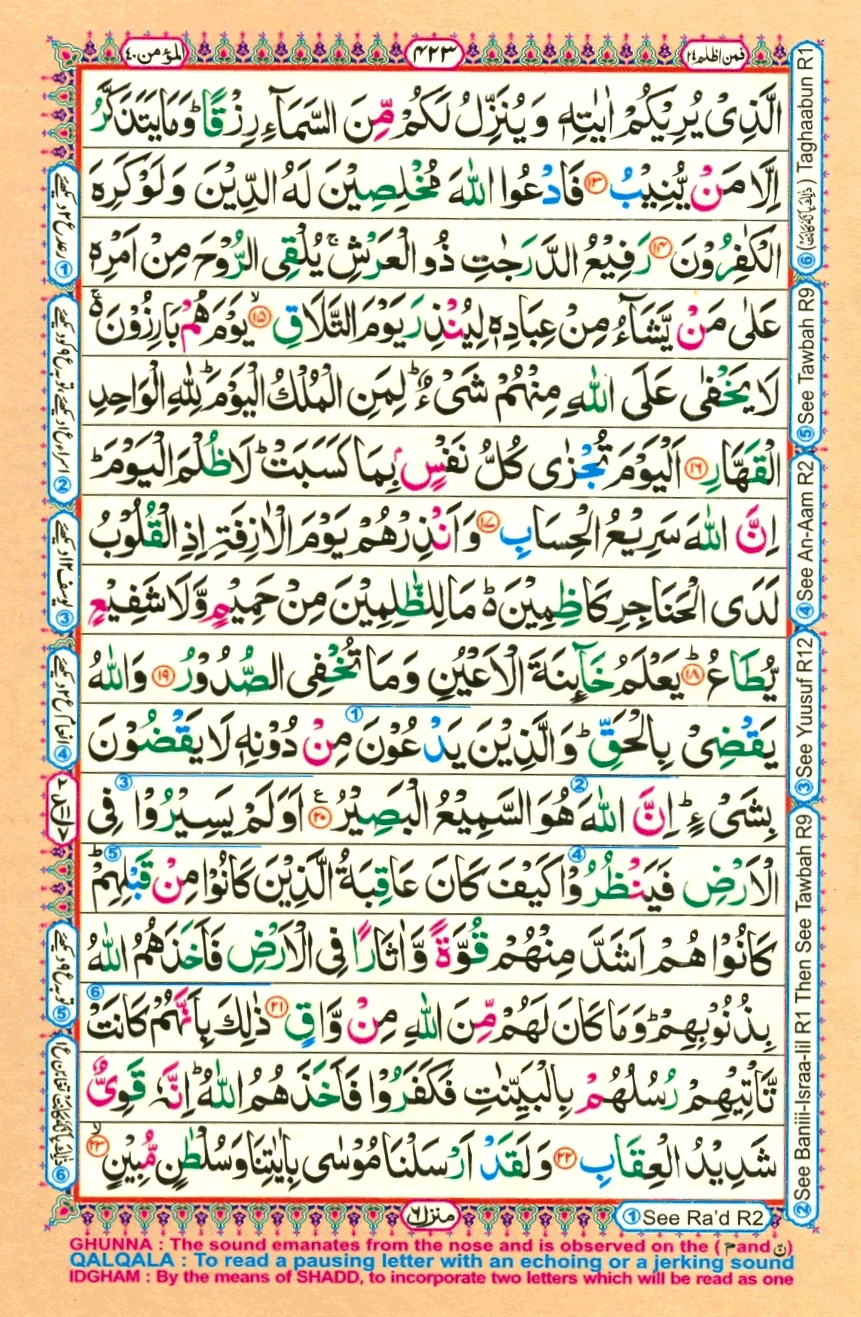 المؤمن ٤٠
٤٢٣
فمن اظلم ٢٤
الَّذِىْ يُرِيْكُمْ اٰيٰتِهٖ وَيُنَزِّلُ لَكُمْ مِّنَ السَّمَآءِ رِزْقًا ؕ وَمَا يَتَذَكَّرُ
اِلَّا مَنْ يُّنِيْبُ ﴿۱۳﴾ فَادْعُوا اللّٰهَ مُخْلِصِيْنَ لَهُ الدِّيْنَ وَلَوْ كَرِهَ
الْكٰفِرُوْنَ ﴿۱۴﴾ رَفِيْعُ الدَّرَجٰتِ ذُو الْعَرْشِ ۚ يُلْقِى الرُّوْحَ مِنْ اَمْرِهٖ
عَلٰى مَنْ يَّشَآءُ مِنْ عِبَادِهٖ لِيُنْذِرَ يَوْمَ التَّلَاقِ ۙ﴿۱۵﴾ يَوْمَ هُمْ بَارِزُوْنَ ۚ۬
لَا يَخْفٰى عَلَى اللّٰهِ مِنْهُمْ شَىْءٌ ؕ لِمَنِ الْمُلْكُ الْيَوْمَ ؕ لِلّٰهِ الْوَاحِدِ
الْقَهَّارِ ﴿۱۶﴾ اَلْيَوْمَ تُجْزٰى كُلُّ نَفْسٍۭ بِمَا كَسَبَتْ ؕ لَا ظُلْمَ الْيَوْمَ ؕ
اِنَّ اللّٰهَ سَرِيْعُ الْحِسَابِ ﴿۱۷﴾ وَاَنْذِرْهُمْ يَوْمَ الْاٰزِفَةِ اِذِ الْقُلُوْبُ
لَدَى الْحَنَاجِرِ كَاظِمِيْنَ ؕ مَا لِلظّٰلِمِيْنَ مِنْ حَمِيْمٍ وَّلَا شَفِيْعٍ
يُّطَاعُ ؕ﴿۱۸﴾ يَعْلَمُ خَآئِنَةَ الْاَعْيُنِ وَمَا تُخْفِى الصُّدُوْرُ ﴿۱۹﴾ وَاللّٰهُ
يَقْضِىْ بِالْحَقِّ ؕ وَالَّذِيْنَ يَدْعُوْنَ مِنْ دُوْنِهٖ لَا يَقْضُوْنَ
بِشَىْءٍ ؕ اِنَّ اللّٰهَ هُوَ السَّمِيْعُ الْبَصِيْرُ ﴿۲۰﴾ اَوَلَمْ يَسِيْرُوْا فِى
الْاَرْضِ فَيَنْظُرُوْا كَيْفَ كَانَ عَاقِبَةُ الَّذِيْنَ كَانُوْا مِنْ قَبْلِهِمْ ؕ
كَانُوْا هُمْ اَشَدَّ مِنْهُمْ قُوَّةً وَّاٰثَارًا فِى الْاَرْضِ فَاَخَذَهُمُ اللّٰهُ
بِذُنُوْبِهِمْ ؕ وَمَا كَانَ لَهُمْ مِّنَ اللّٰهِ مِنْ وَّاقٍ ﴿۲۱﴾ ذٰلِكَ بِاَنَّهُمْ كَانَتْ
تَّاْتِيْهِمْ رُسُلُهُمْ بِالْبَيِّنٰتِ فَكَفَرُوْا فَاَخَذَهُمُ اللّٰهُ ؕ اِنَّهٗ قَوِىٌّ
شَدِيْدُ الْعِقَابِ ﴿۲۲﴾ وَلَقَدْ اَرْسَلْنَا مُوْسٰى بِاٰيٰتِنَا وَسُلْطٰنٍ مُّبِيْنٍ ۙ﴿۲۳﴾
① رعد ع ٢ دیکھئے
③ یوسف ع ١٢ دیکھئے
④ انعام ع ٢ دیکھئے
⑤ توبہ ع ٩ دیکھئے
② See Baniii-Israa-Iil R1 Then See Tawbah R9
③ See Yuusuf R12
④ See An-Aam R2
⑤ See Tawbah R9
⑥ (ذٰلِكَ بِاَنَّهٗ كَانَتْ) Taghaabun R1
منزل ٦
① See Ra'd R2
GHUNNA : The sound emanates from the nose and is observed on the (م and ن)
QALQALA : To read a pausing letter with an echoing or a jerking sound
IDGHAM : By the means of SHADD, to incorporate two letters which will be read as one